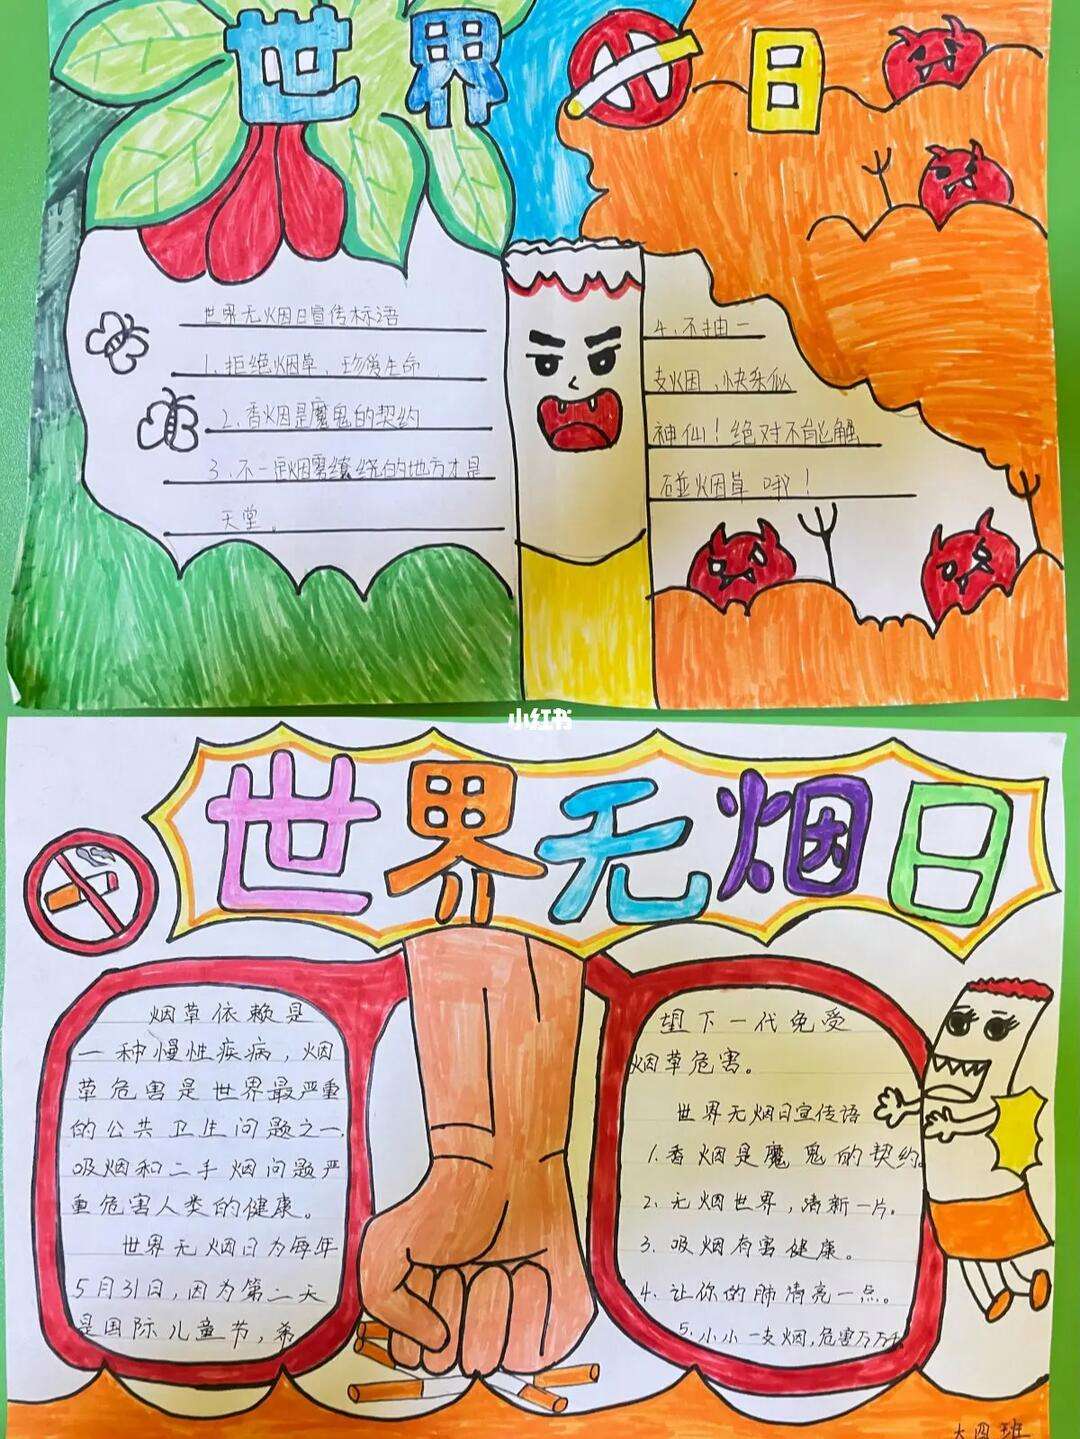 世界日
世界无烟日宣传标语
1、拒绝烟草、珍爱生命
2、香烟是魔鬼的契约
3、不一定烟雾缭绕的地方才是
天堂。
4、不抽一
支烟、快乐似
神仙！绝对不能触
碰烟草哦！
小红书
世界无烟日
烟草依赖是
一种慢性疾病，烟
草危害是世界最严重
的公共卫生问题之一，
吸烟和二手烟问题严
重危害人类的健康。
世界无烟日为每年
5月31日，因为第二天
是国际儿童节，希
望下一代免受
烟草危害。
世界无烟日宣传语
1.香烟是魔鬼的契约。
2.无烟世界，清新一片。
3.吸烟有害健康。
4.让你的肺清亮一点。
5.小小一支烟，危害万万千
大四班